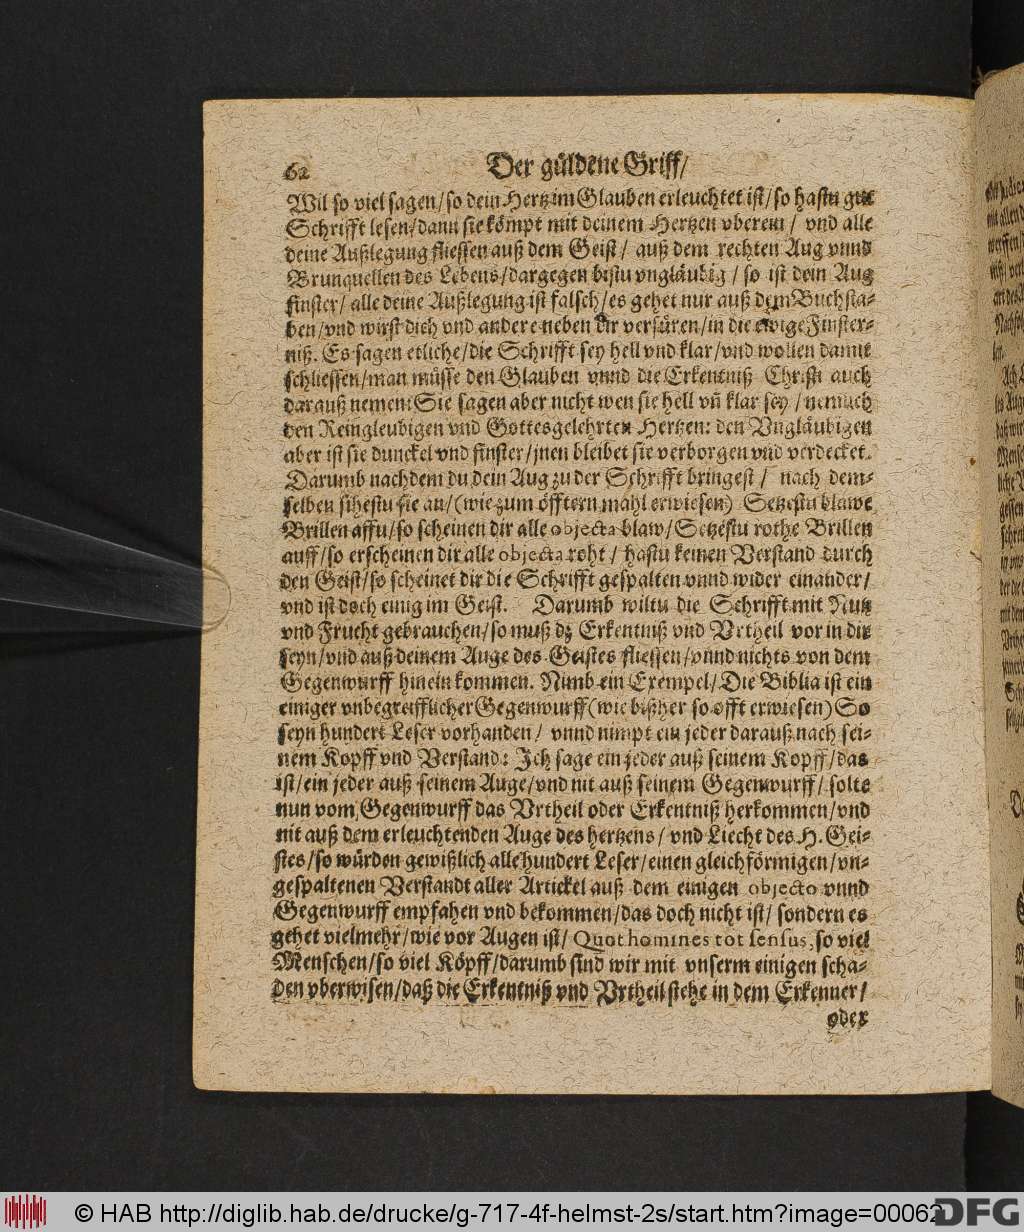 62 Der güldene Griff/
Wil so viel sagen/so dein Hertz im Glauben erleuchtet ist/so hastu gut
Schrifft lesen/dann sie kömpt mit deinem Hertzen vberein/ vnd alle
deine Außlegung fliessen auß dem Geist/ auß dem rechten Aug vnnd
Brunquellen des Lebens/dargegen bistu vngläubig/so ist dein Aug
finster/alle deine Außlegung ist falsch/es gehet nur auß dem Buchsta-
ben/vnd wirst dich vnd andere neben dir verfüren/in die ewige Finster-
niß. Es sagen etliche/die Schrifft sey hell vnd klar/vnd wollen damit
schliessen/man müsse den Glauben vnnd die Erkentniß Christi auch
darauß nemen: Sie sagen aber nicht wen sie hell vñ klar sey/nemlich
den Reingleubigen vnd Gottesgelehrten Hertzen: den Vngläubigen
aber ist sie dunckel vnd finster/jnen bleibet sie verborgen vnd verdecket.
Darumb nachdem du dein Aug zu der Schrifft bringest/ nach dem-
selben sihestu sie an/(wie zum öfftern mahl erwiesen) Setzestu blawe
Brillen affu/so scheinen dir alle objecta blaw/Setzestu rothe Brillen
auff/so erscheinen dir alle objecta roht/ hastu keinen Verstand durch
den Geist/so scheinet dir die Schrifft gespalten vnnd wider einander/
vnd ist doch einig im Geist. Darumb wiltu die Schrifft mit Nutz
vnd Frucht gebrauchen/so muß dz Erkentniß vnd Vrtheil vor in dir
seyn/vnd auß deinem Auge des Geistes fliessen/vnnd nichts von dem
Gegenwurff hinein kommen. Nimb ein Exempel/Die Biblia ist ein
einiger vnbegreifflicher Gegenwurff(wie bißher so offt erwiesen) So
seyn hundert Leser vorhanden/ vnnd nimpt ein jeder darauß nach sei-
nem Kopff vnd Verstand: Ich sage ein jeder auß seinem Kopff/das
ist/ein jeder auß seinem Auge/vnd nit auß seinem Gegenwurff/solte
nun vom Gegenwurff das Vrtheil oder Erkentniß herkommen/vnd
nit auß dem erleuchtenden Auge des hertzens/vnd Liecht des H. Gei-
stes/so würden gewißlich alle hundert Leser/einen gleichförmigen/vn-
gespaltenen Verstandt aller Artickel auß dem einigen objecto vnnd
Gegenwurff empfahen vnd bekommen/das doch nicht ist/ sondern es
gehet vielmehr/wie vor Augen ist/ Quot homines tot sensus, so viel
Menschen/so viel Köpff/darumb sind wir mit vnserm einigen scha-
den vberwisen/daß die Erkentniß vnd Vrtheil stehe in dem Erkenner/
oder
© HAB http://diglib.hab.de/drucke/g-717-4f-helmst-2s/start.htm?image=00062
DFG